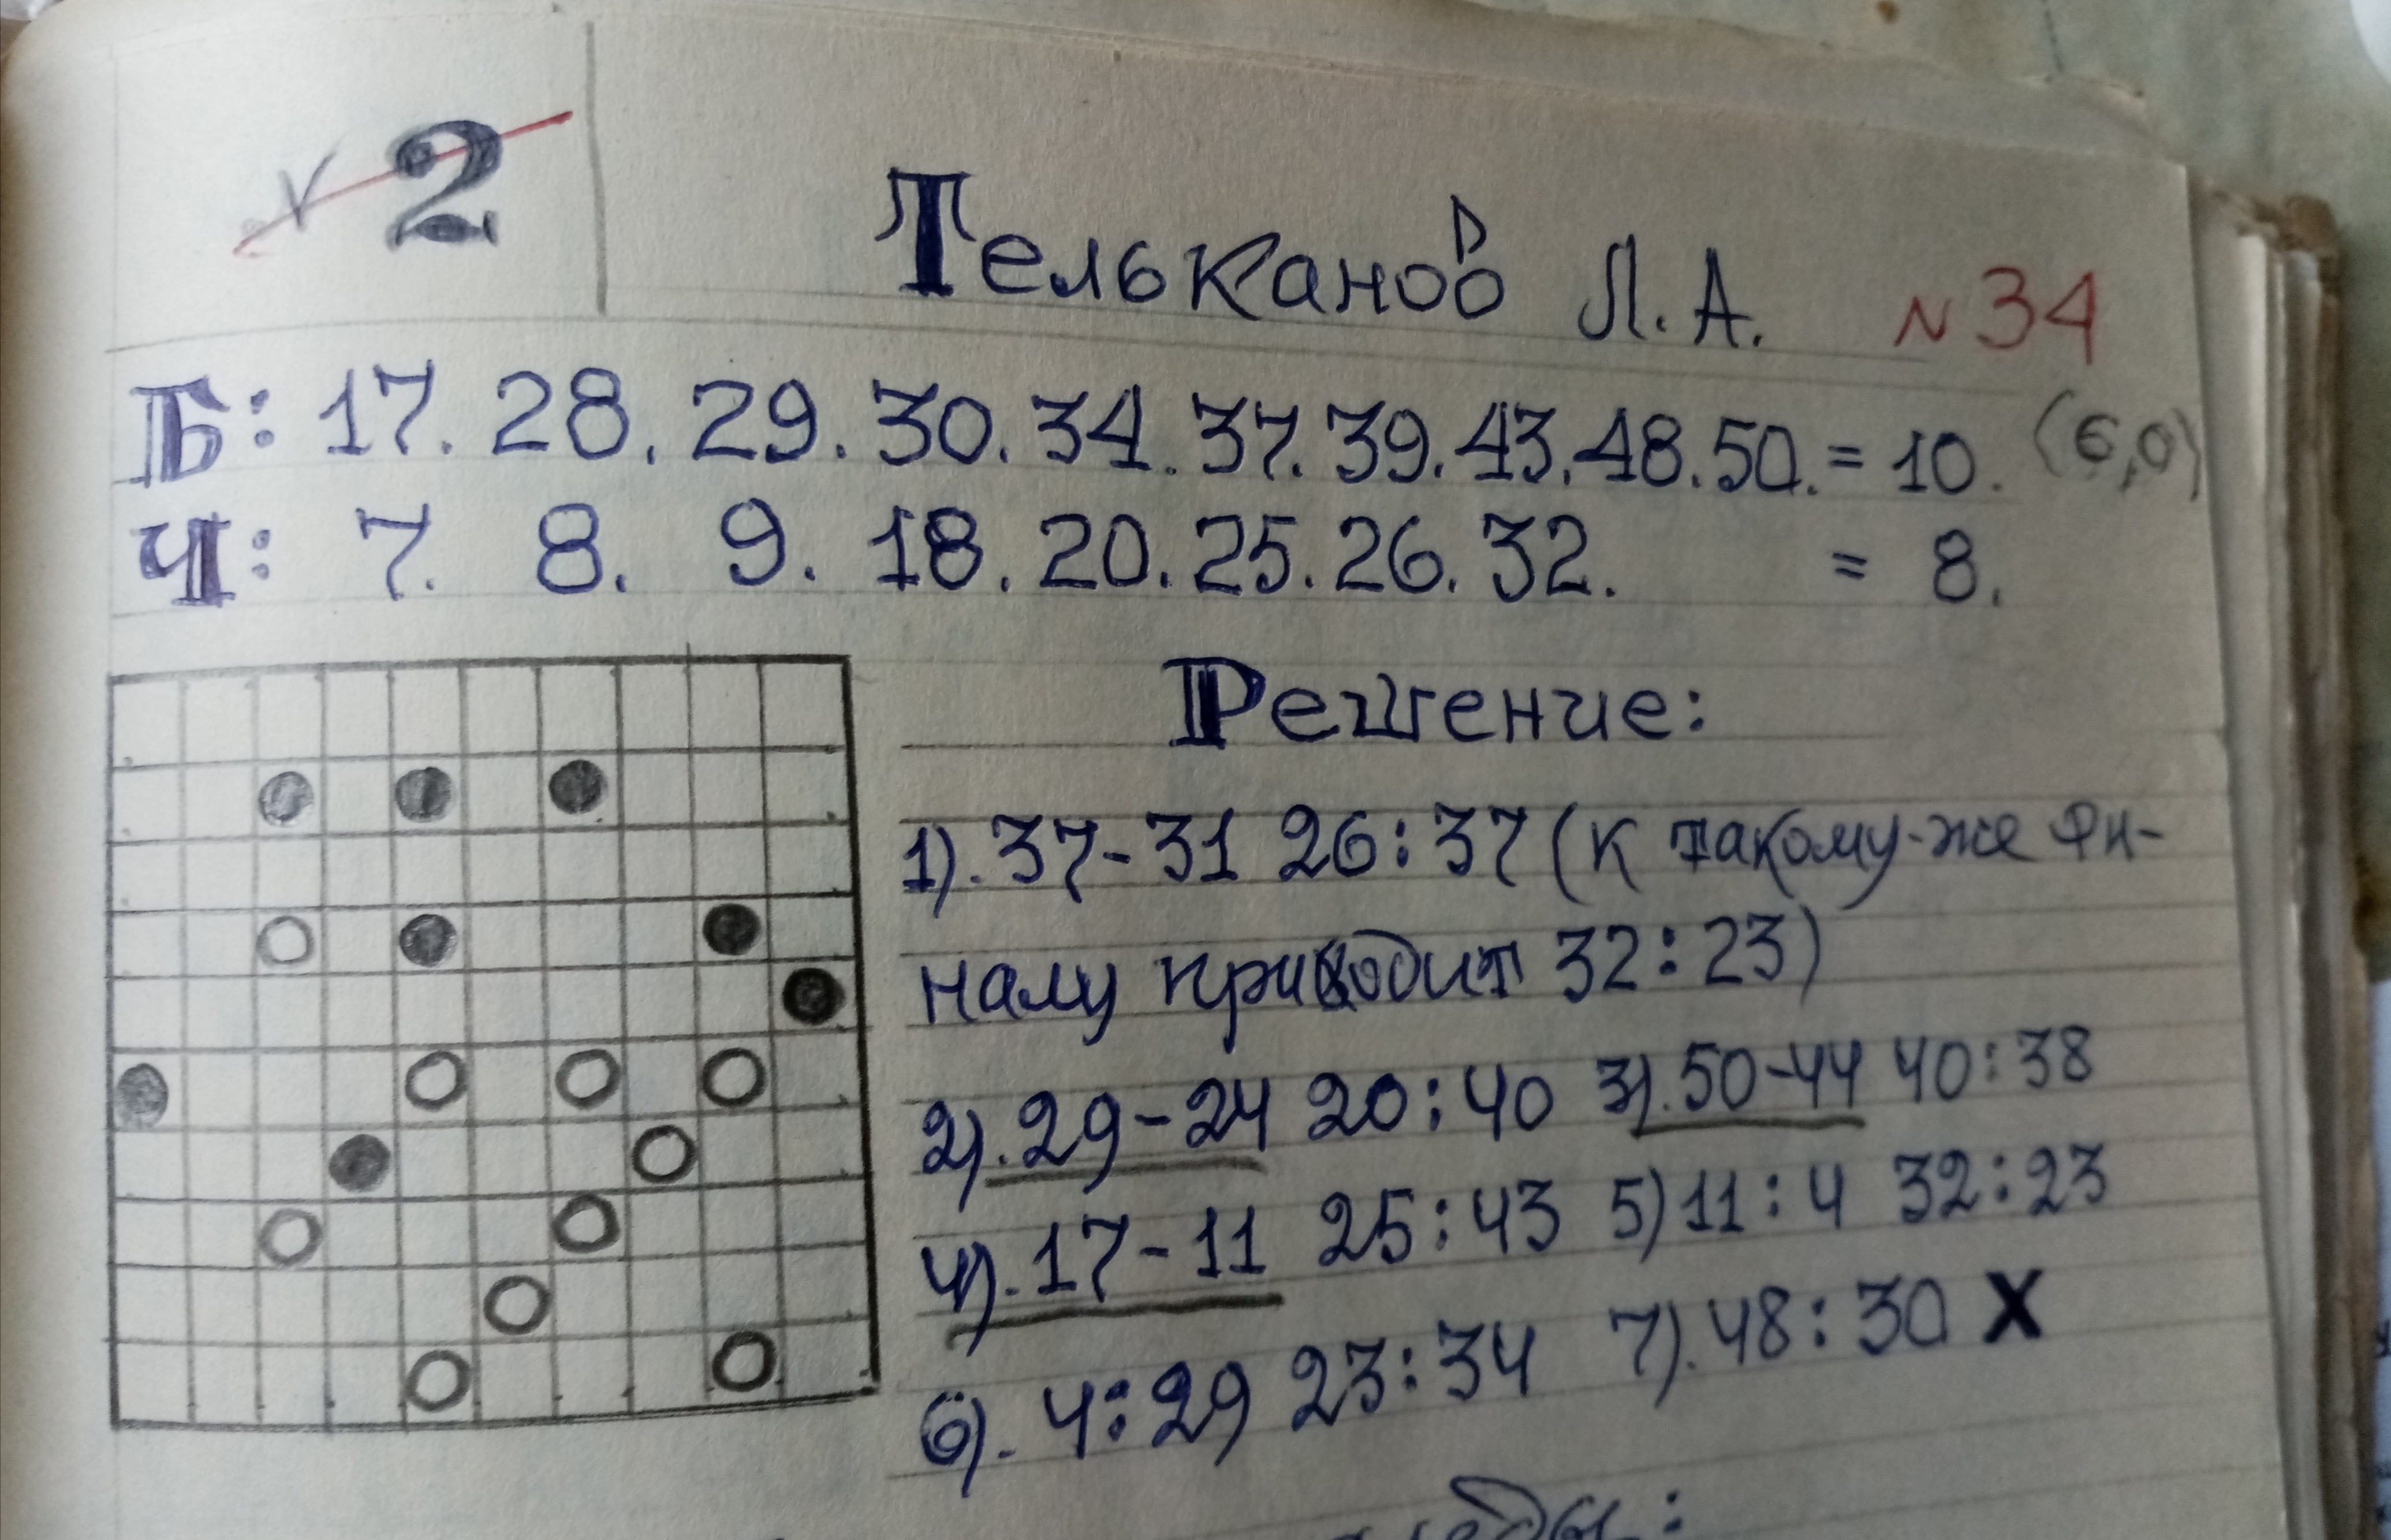 № 2
Тельканов Л. А. № 34
Б: 17. 28. 29. 30. 34. 37. 39. 43. 48. 50. = 10. (6,0)
Ч: 7. 8. 9. 18. 20. 25. 26. 32. = 8.
Решение:
1). 37-31 26:37 (к такому-же фи-
налу приводит 32:23)
2). 29-24 20:40 3). 50-44 40:38
4). 17-11 25:43 5) 11:4 32:23
6). 4:29 23:34 7). 48:30 X